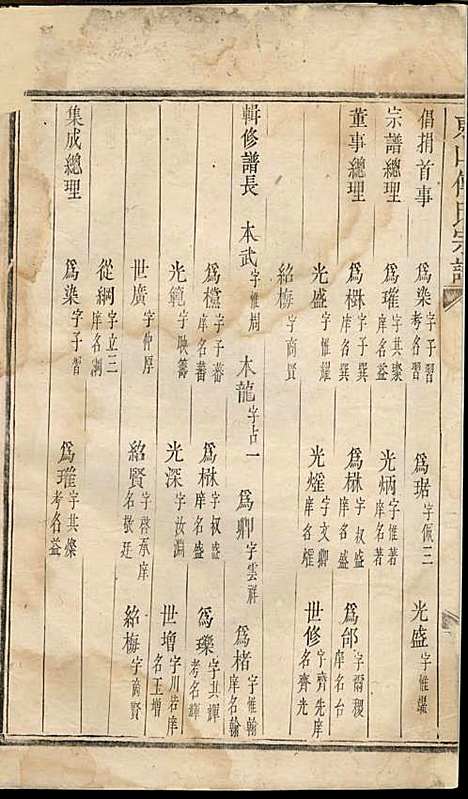 倡捐首事 爲染字子習考名習 爲琚字佩三 光盛字惟耀
宗譜總理 爲璀字其璨庠名益 光炳字惟著庠名著
董事總理 爲樹字子撰庠名撰 爲楙字叔盛庠名盛 爲邰字爾稷庠名台
光盛字惟耀 光燿字文卿庠名燿 世修字齊先庠名齊光
紹梅字商賢
輯修譜長 本武字惟周 木龍字占一 爲卿字雲祥 爲楮字惟翰庠名翰
爲欓字子蕃庠名蕃 爲楙字叔盛庠名盛 爲瓅字其輝考名輝
光範字映籌 光深字汝淵 世增字川岩庠名玉增
世廣字仲厚 紹賢字啓承庠名敬廷 紹梅字商賢
從綱字立三庠名潤
集成總理 爲染字子習 爲璀字其璨考名益
宗譜